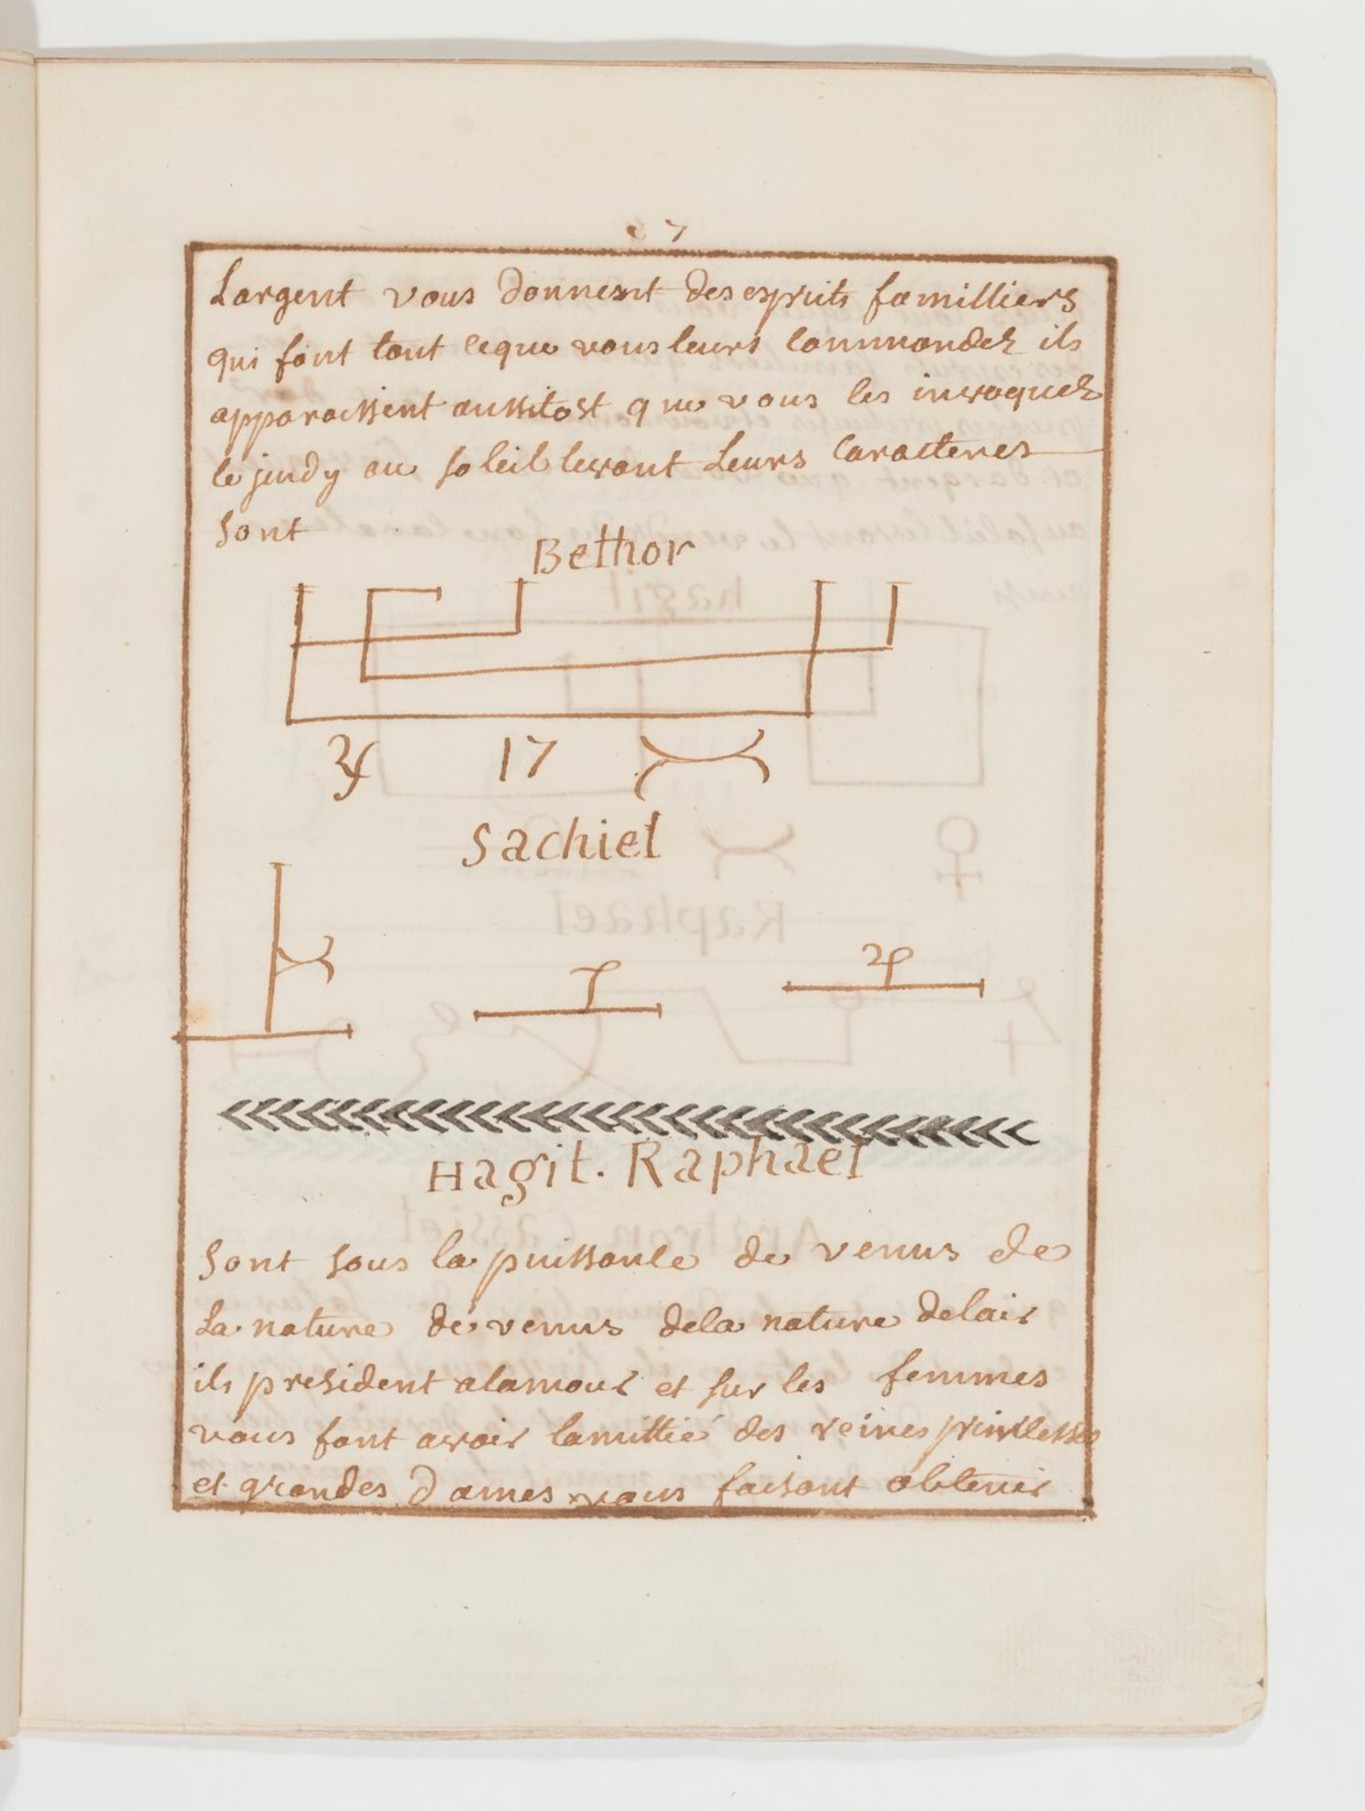 Largent vous donnent des espruits familliers
qui font tout ceque vous leurs commandez ils
apparoissent aussitost que vous les invoquez
le jeudy au soleil levant Leurs caracteres
sont
Bethor
♃ 17
Sachiel
♃
Hagit. Raphael
sont sous la puissance de venus de
La nature de venus dela nature delair
ils president alamour et sur les femmes
vous font avoir lamittié des reines princesses
et grandes Dames vous faisant obtenir